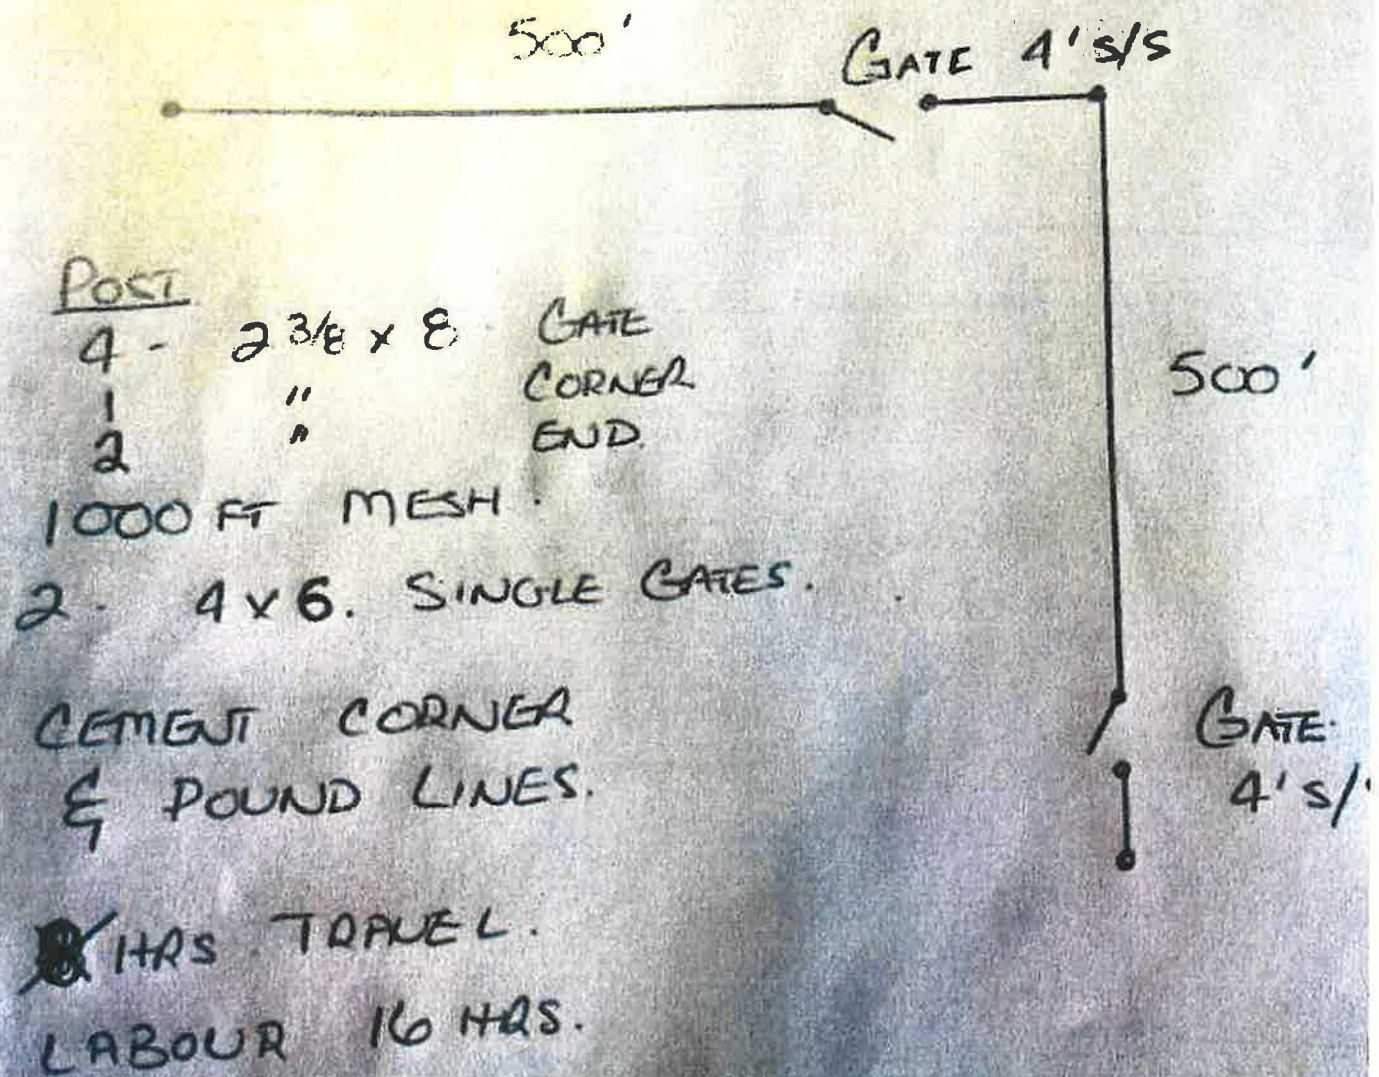 500'
GATE 4' S/S
POST
4 - 2 3/8 x 8 GATE
1 " CORNER
2 " END.
500'
1000 FT MESH.
2. 4 x 6. SINGLE GATES.
GATE.
4' S/
CEMENT CORNER
& POUND LINES.
HRS TRAVEL.
LABOUR 16 HRS.